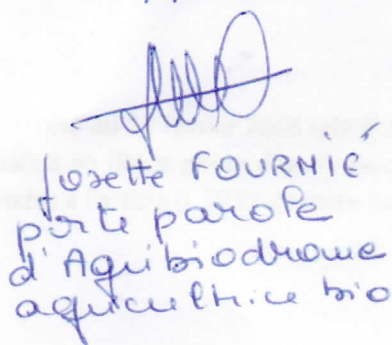 Josette FOURNIÉ
porte parole
d'Agribiodrome
agricultrice bio